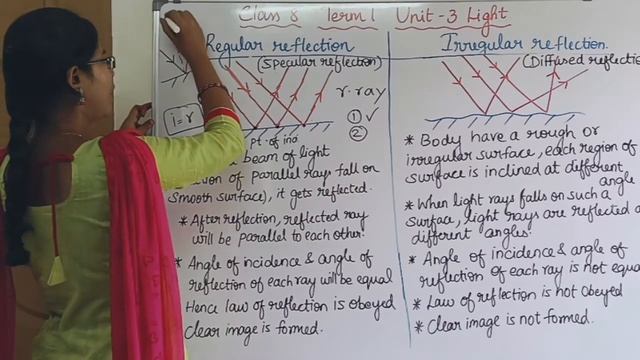 Class 8 Term 1 Unit - 3 Light
Regular reflection
(Specular reflection)
i = r
r.ray
① ✓
②
pt. of inci
beam of light
of parallel rays fall on
smooth surface), it gets reflected.
* After reflection, reflected ray
will be parallel to each other.
* Angle of incidence & angle of
reflection of each ray will be equal
Hence law of reflection is obeyed
Clear image is formed.
Irregular reflection.
(Diffused reflectio
* Body have a rough or
irregular surface, each region of
surface is inclined at different
angle
* When light rays falls on such a
surface, light rays are reflected a
different angles.
* Angle of incidence & angle of
reflection of each ray is not equa
* Law of reflection is not obeyed
* Clear image is not formed.